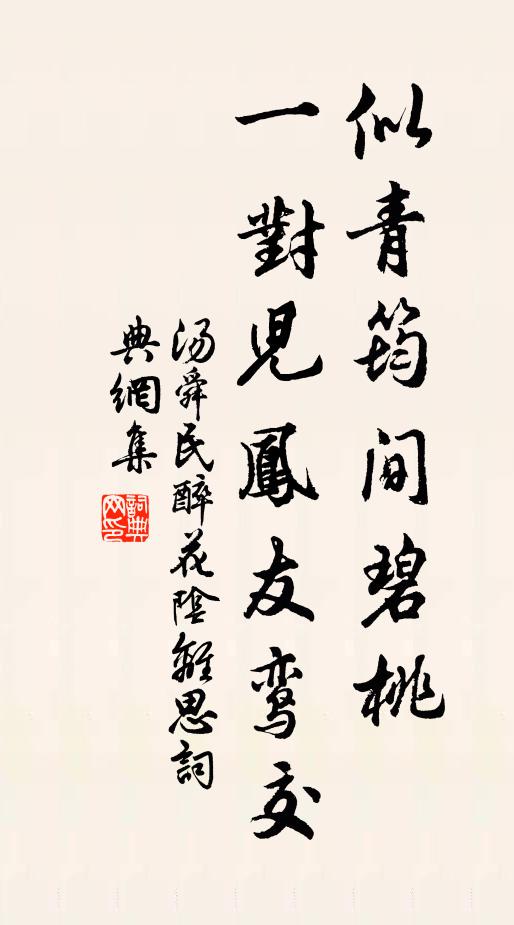 似青筠間碧桃
一對兒鳳友鸞交
汤舜民醉花陰離思詞
典網集
詞典网印